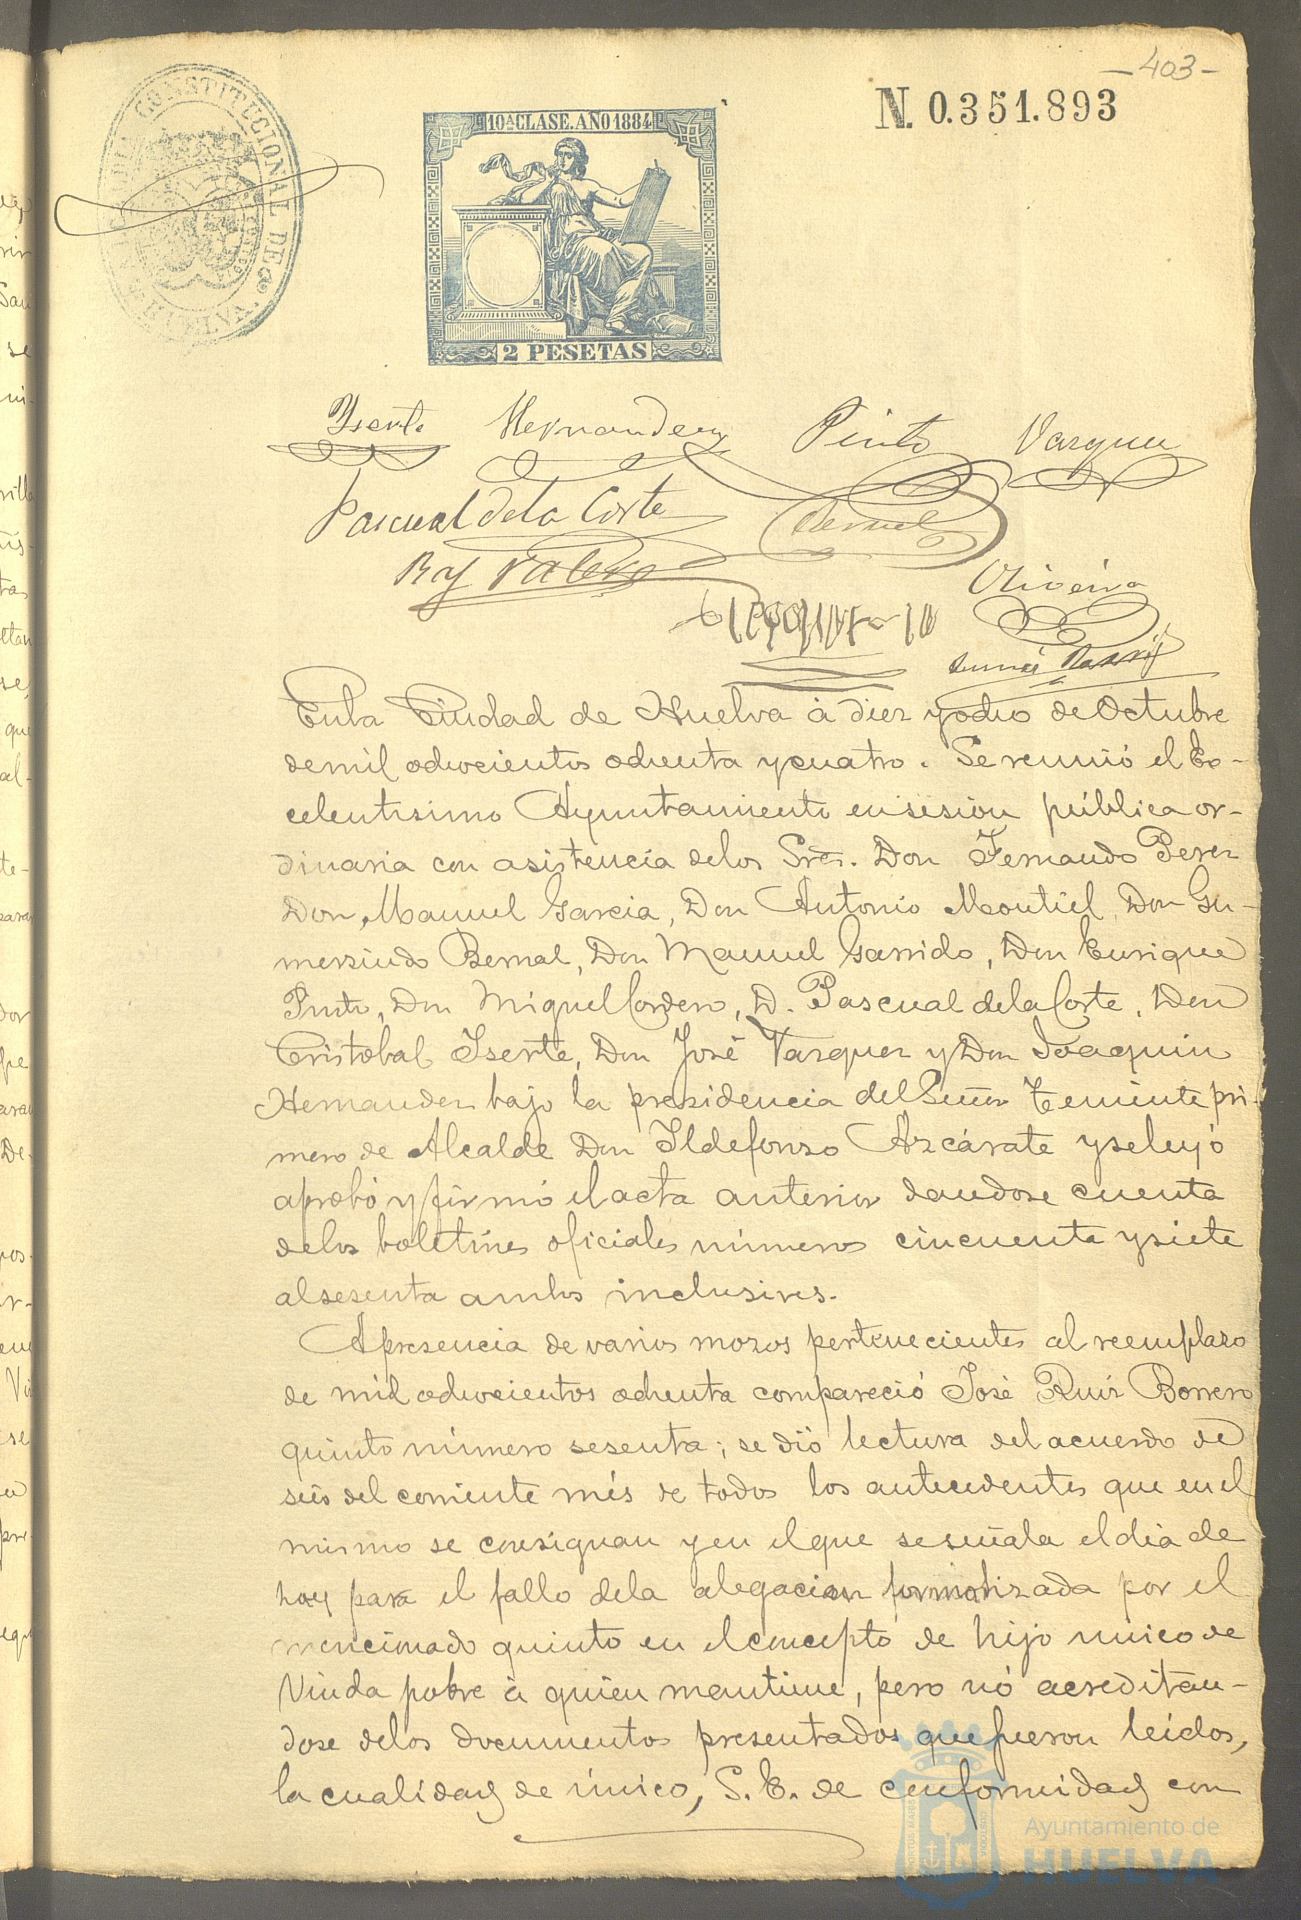 -403-
N. 0.351.893
ALCALDIA CONSTITUCIONAL DE HUELVA
10ª CLASE. AÑO 1884
2 PESETAS
Yserte Hernandez Pinto Vazquez
Pascual de la Corte Bernal
Oliveira
En la Ciudad de Huelva à diez y ocho de Octubre
de mil ochocientos ochenta y cuatro. Se reunió el Ex-
celentisimo Ayuntamiento en sesion pública or-
dinaria con asistencia de los Sres. Don Fernando Perez
Don Manuel Garcia, Don Antonio Montiel, Don Gu-
mersindo Bernal, Don Manuel Garrido, Don Enrique
Pinto, Don Miguel Cordero, D. Pascual de la Corte, Don
Cristobal Iserte, Don José Vazquez y Don Joaquin
Hernandez bajo la presidencia del Señor Teniente pri-
mero de Alcalde Don Ildefonso Azcárate y se leyó
aprobó y firmó el acta anterior dandose cuenta
de los boletines oficiales números cincuenta y siete
al sesenta ambos inclusives.
A presencia de varios mozos pertenecientes al reemplazo
de mil ochocientos ochenta compareció José Ruiz Borrero
quinto número sesenta; se dió lectura del acuerdo de
seis del corriente més de todos los antecedentes que en el
mismo se consignan y en el que se señala el dia de
hoy para el fallo de la alegacion formalizada por el
mencionado quinto en el concepto de hijo unico de
Viuda pobre à quien mantiene, pero nó acreditan-
dose de los documentos presentados que fueron leidos,
la cualidad de único, S. E. de conformidad con
Ayuntamiento de
HUELVA